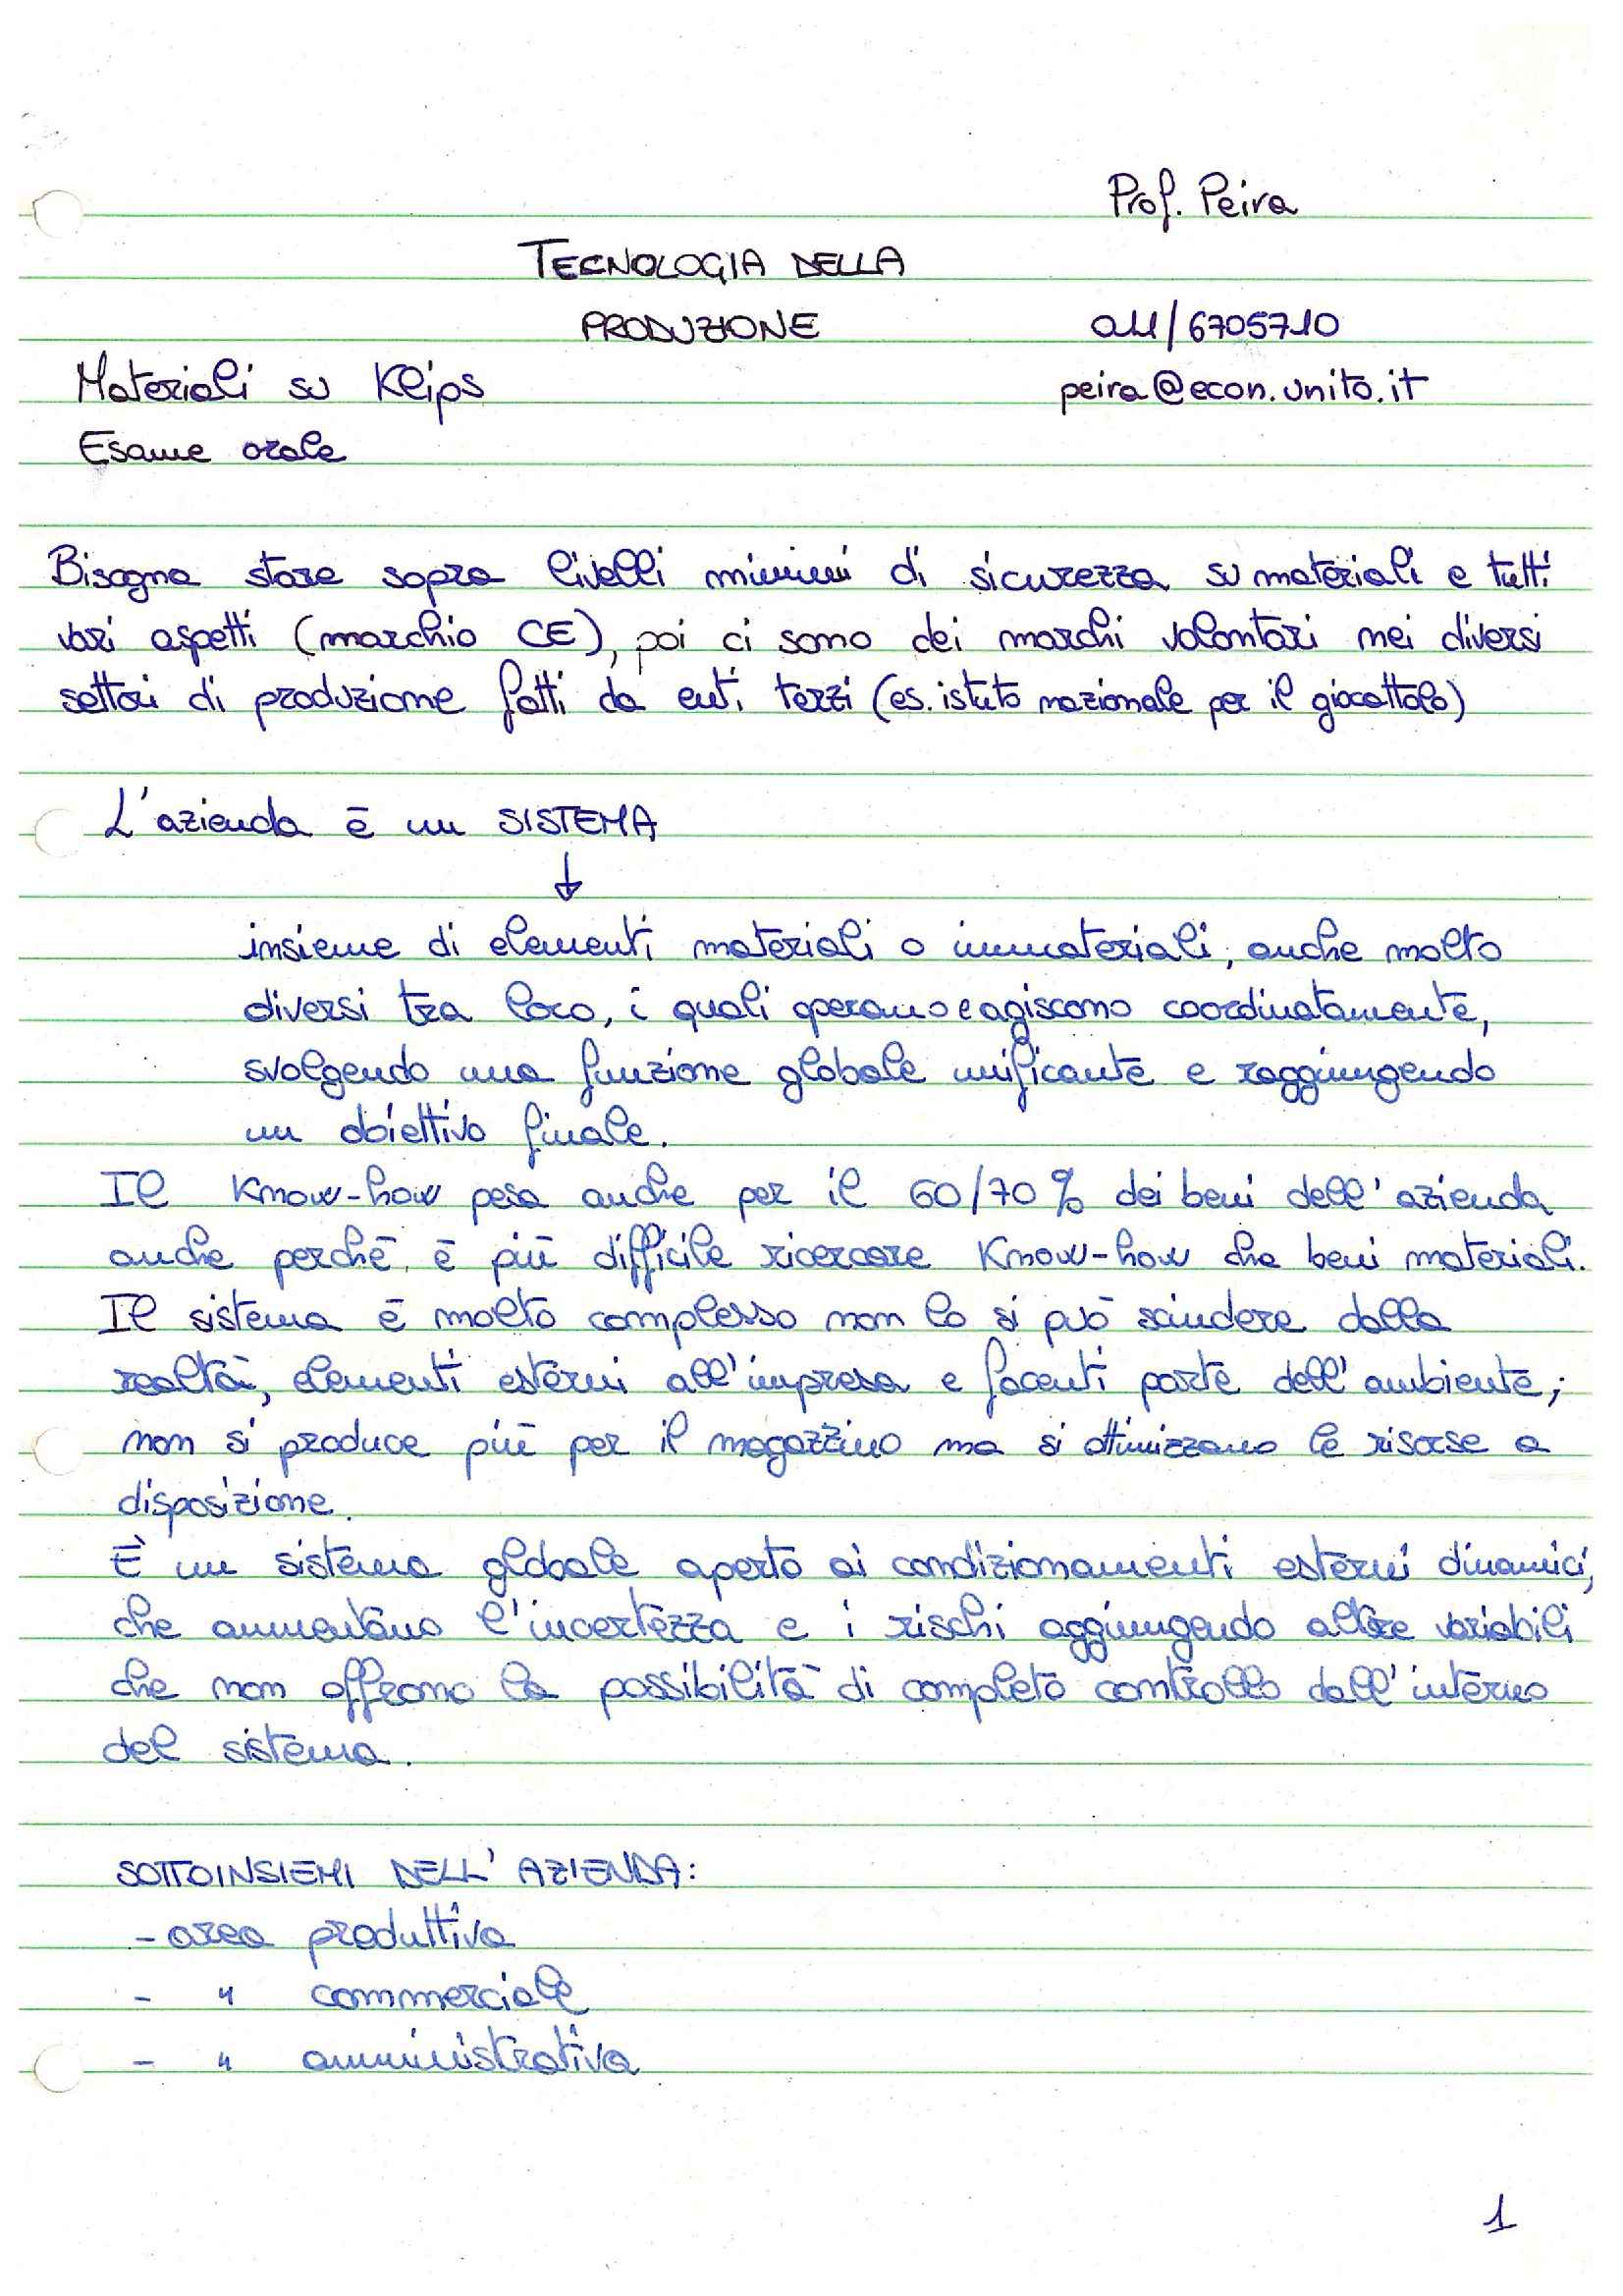 Prof. Peira
TECNOLOGIA DELLA
PRODUZIONE 011/6705710
Materiali su Klips peira@econ.unito.it
Esame orale
Bisogna stare sopra livelli minimi di sicurezza su materiali e tutti
vari aspetti (marchio CE), poi ci sono dei marchi volontari nei diversi
settori di produzione fatti da enti terzi (es. istituto nazionale per il giocattolo)
L'azienda è un SISTEMA
↓
insieme di elementi materiali o immateriali, anche molto
diversi tra loro, i quali operano e agiscono coordinatamente,
svolgendo una funzione globale unificante e raggiungendo
un obiettivo finale.
Il Know-how pesa anche per il 60/70% dei beni dell'azienda
anche perchè è più difficile ricercare Know-how che beni materiali.
Il sistema è molto complesso non lo si può scindere dalla
realtà, elementi esterni all'impresa e facenti parte dell'ambiente;
non si produce più per il magazzino ma si ottimizzano le risorse a
disposizione.
È un sistema globale aperto ai condizionamenti esterni dinamici,
che aumentano l'incertezza e i rischi aggiungendo altre variabili
che non offrono la possibilità di completo controllo dall'interno
del sistema.
SOTTOINSIEMI DELL'AZIENDA:
- area produttiva
- " commerciale
- " amministrativa
1